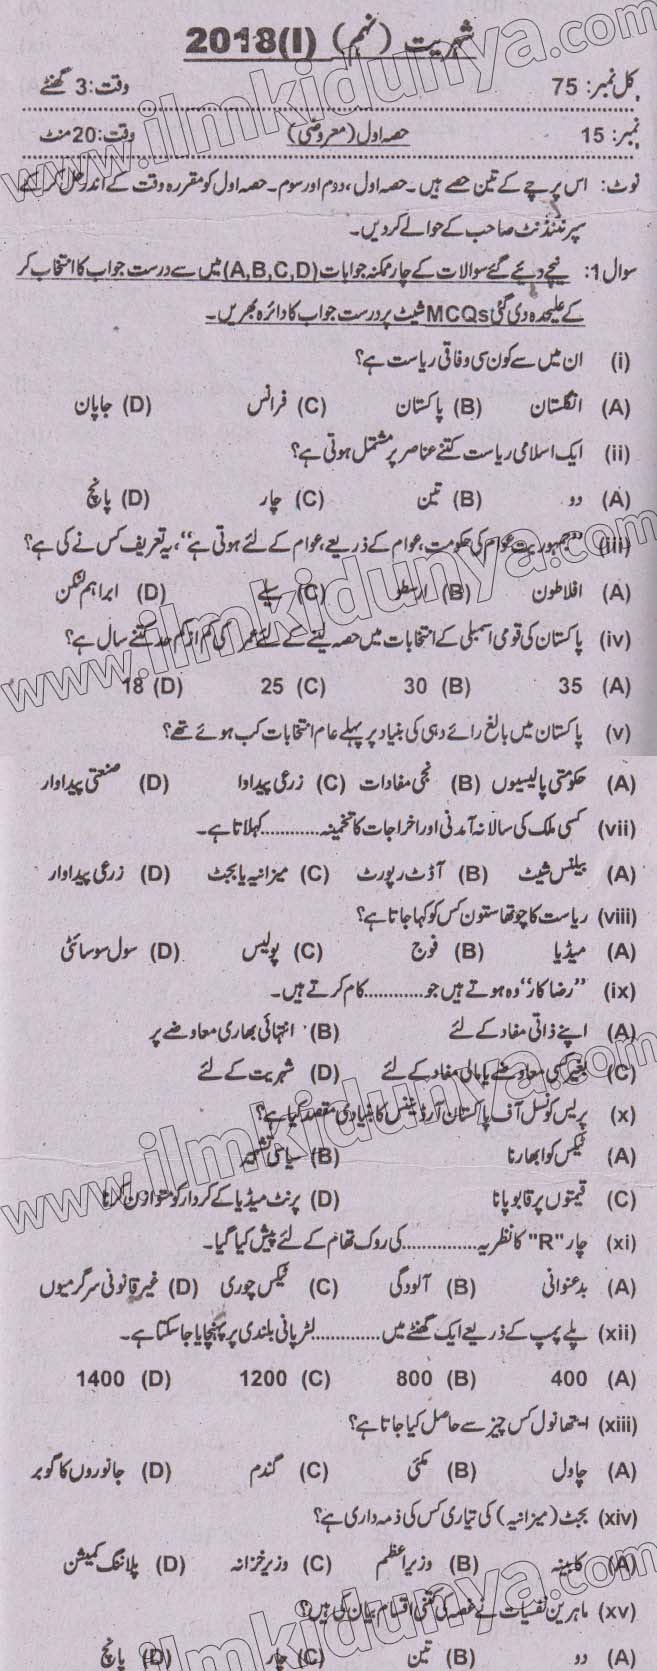 شہریت (نہم) 2018(I)
کل نمبر: 75 وقت: 3 گھنٹے
نمبر: 15 حصہ اول (معروضی) وقت: 20 منٹ
نوٹ: اس پرچے کے تین حصے ہیں۔ حصہ اول، دوم اور سوم۔ حصہ اول کو مقررہ وقت کے اندر حل کر کے
سپرنٹنڈنٹ صاحب کے حوالے کر دیں۔
سوال 1: نیچے دیئے گئے سوالات کے چار ممکنہ جوابات (A,B,C,D) میں سے درست جواب کا انتخاب کر
کے علیحدہ دی گئی MCQs شیٹ پر درست جواب کا دائرہ بھریں۔
(i) ان میں سے کون سی وفاقی ریاست ہے؟
(A) انگلستان (B) پاکستان (C) فرانس (D) جاپان
(ii) ایک اسلامی ریاست کتنے عناصر پر مشتمل ہوتی ہے؟
(A) دو (B) تین (C) چار (D) پانچ
(iii) ’’جمہوریت عوام کی حکومت، عوام کے ذریعے، عوام کے لئے ہوتی ہے‘‘، یہ تعریف کس نے کی ہے؟
(A) افلاطون (B) ارسطو (C) سیلے (D) ابراہم لنکن
(iv) پاکستان کی قومی اسمبلی کے انتخابات میں حصہ لینے کے لئے عمر کی کم از کم حد کتنے سال ہے؟
(A) 35 (B) 30 (C) 25 (D) 18
(v) پاکستان میں بالغ رائے دہی کی بنیاد پر پہلے عام انتخابات کب ہوئے تھے؟
(A) حکومتی پالیسیوں (B) نجی مفادات (C) زرعی پیداوا (D) صنعتی پیداوار
(vii) کسی ملک کی سالانہ آمدنی اور اخراجات کا تخمینہ ............ کہلاتا ہے۔
(A) بیلنس شیٹ (B) آڈٹ رپورٹ (C) میزانیہ یا بجٹ (D) زرعی پیداوار
(viii) ریاست کا چوتھا ستون کس کو کہا جاتا ہے؟
(A) میڈیا (B) فوج (C) پولیس (D) سول سوسائٹی
(ix) ’’رضا کار‘‘ وہ ہوتے ہیں جو ............ کام کرتے ہیں۔
(A) اپنے ذاتی مفاد کے لئے (B) انتہائی بھاری معاوضے پر
(C) بغیر کسی معاوضے یا مالی مفاد کے لئے (D) شہریت کے لئے
(x) پریس کونسل آف پاکستان آرڈیننس کا بنیادی مقصد کیا ہے؟
(A) ٹیکس کو ابھارنا (B) سیاسی تشہیر
(C) قیمتوں پر قابو پانا (D) پرنٹ میڈیا کے کردار کو متوازن کرنا
(xi) چار "R" کا نظریہ ............... کی روک تھام کے لئے پیش کیا گیا۔
(A) بدعنوانی (B) آلودگی (C) ٹیکس چوری (D) غیر قانونی سرگرمیوں
(xii) پلے پمپ کے ذریعے ایک گھنٹے میں .............. لٹر پانی بلندی پر پہنچایا جا سکتا ہے۔
(A) 400 (B) 800 (C) 1200 (D) 1400
(xiii) ایتھانول کس چیز سے حاصل کیا جاتا ہے؟
(A) چاول (B) مکئی (C) گندم (D) جانوروں کا گوبر
(xiv) بجٹ (میزانیہ) کی تیاری کس کی ذمہ داری ہے؟
(A) کابینہ (B) وزیراعظم (C) وزیر خزانہ (D) پلاننگ کمیشن
(xv) ماہرین نفسیات نے غصہ کی کتنی اقسام بیان کی ہیں؟
(A) دو (B) تین (C) چار (D) پانچ
www.ilmkidunya.com
www.ilmkidunya.com
www.ilmkidunya.com
www.ilmkidunya.com